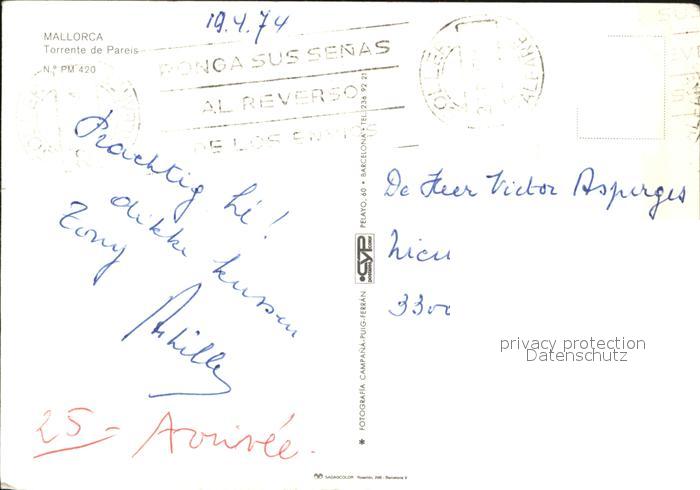 19.4.74
MALLORCA
Torrente de Pareis
N.º PM 420
PONGA SUS SEÑAS
AL REVERSO
DE LOS ENVIOS
Prachtig hé!
dikke kussen
Tony
Achille
25 - Arrivée.
De Heer Victor Asperges
3300
privacy protection
Datenschutz
✱ FOTOGRAFÍA CAMPAÑA-PUIG-FERRÁN
CYP
PELAYO, 60 • BARCELONA • TEL. 236 92 21
SADAGCOLOR